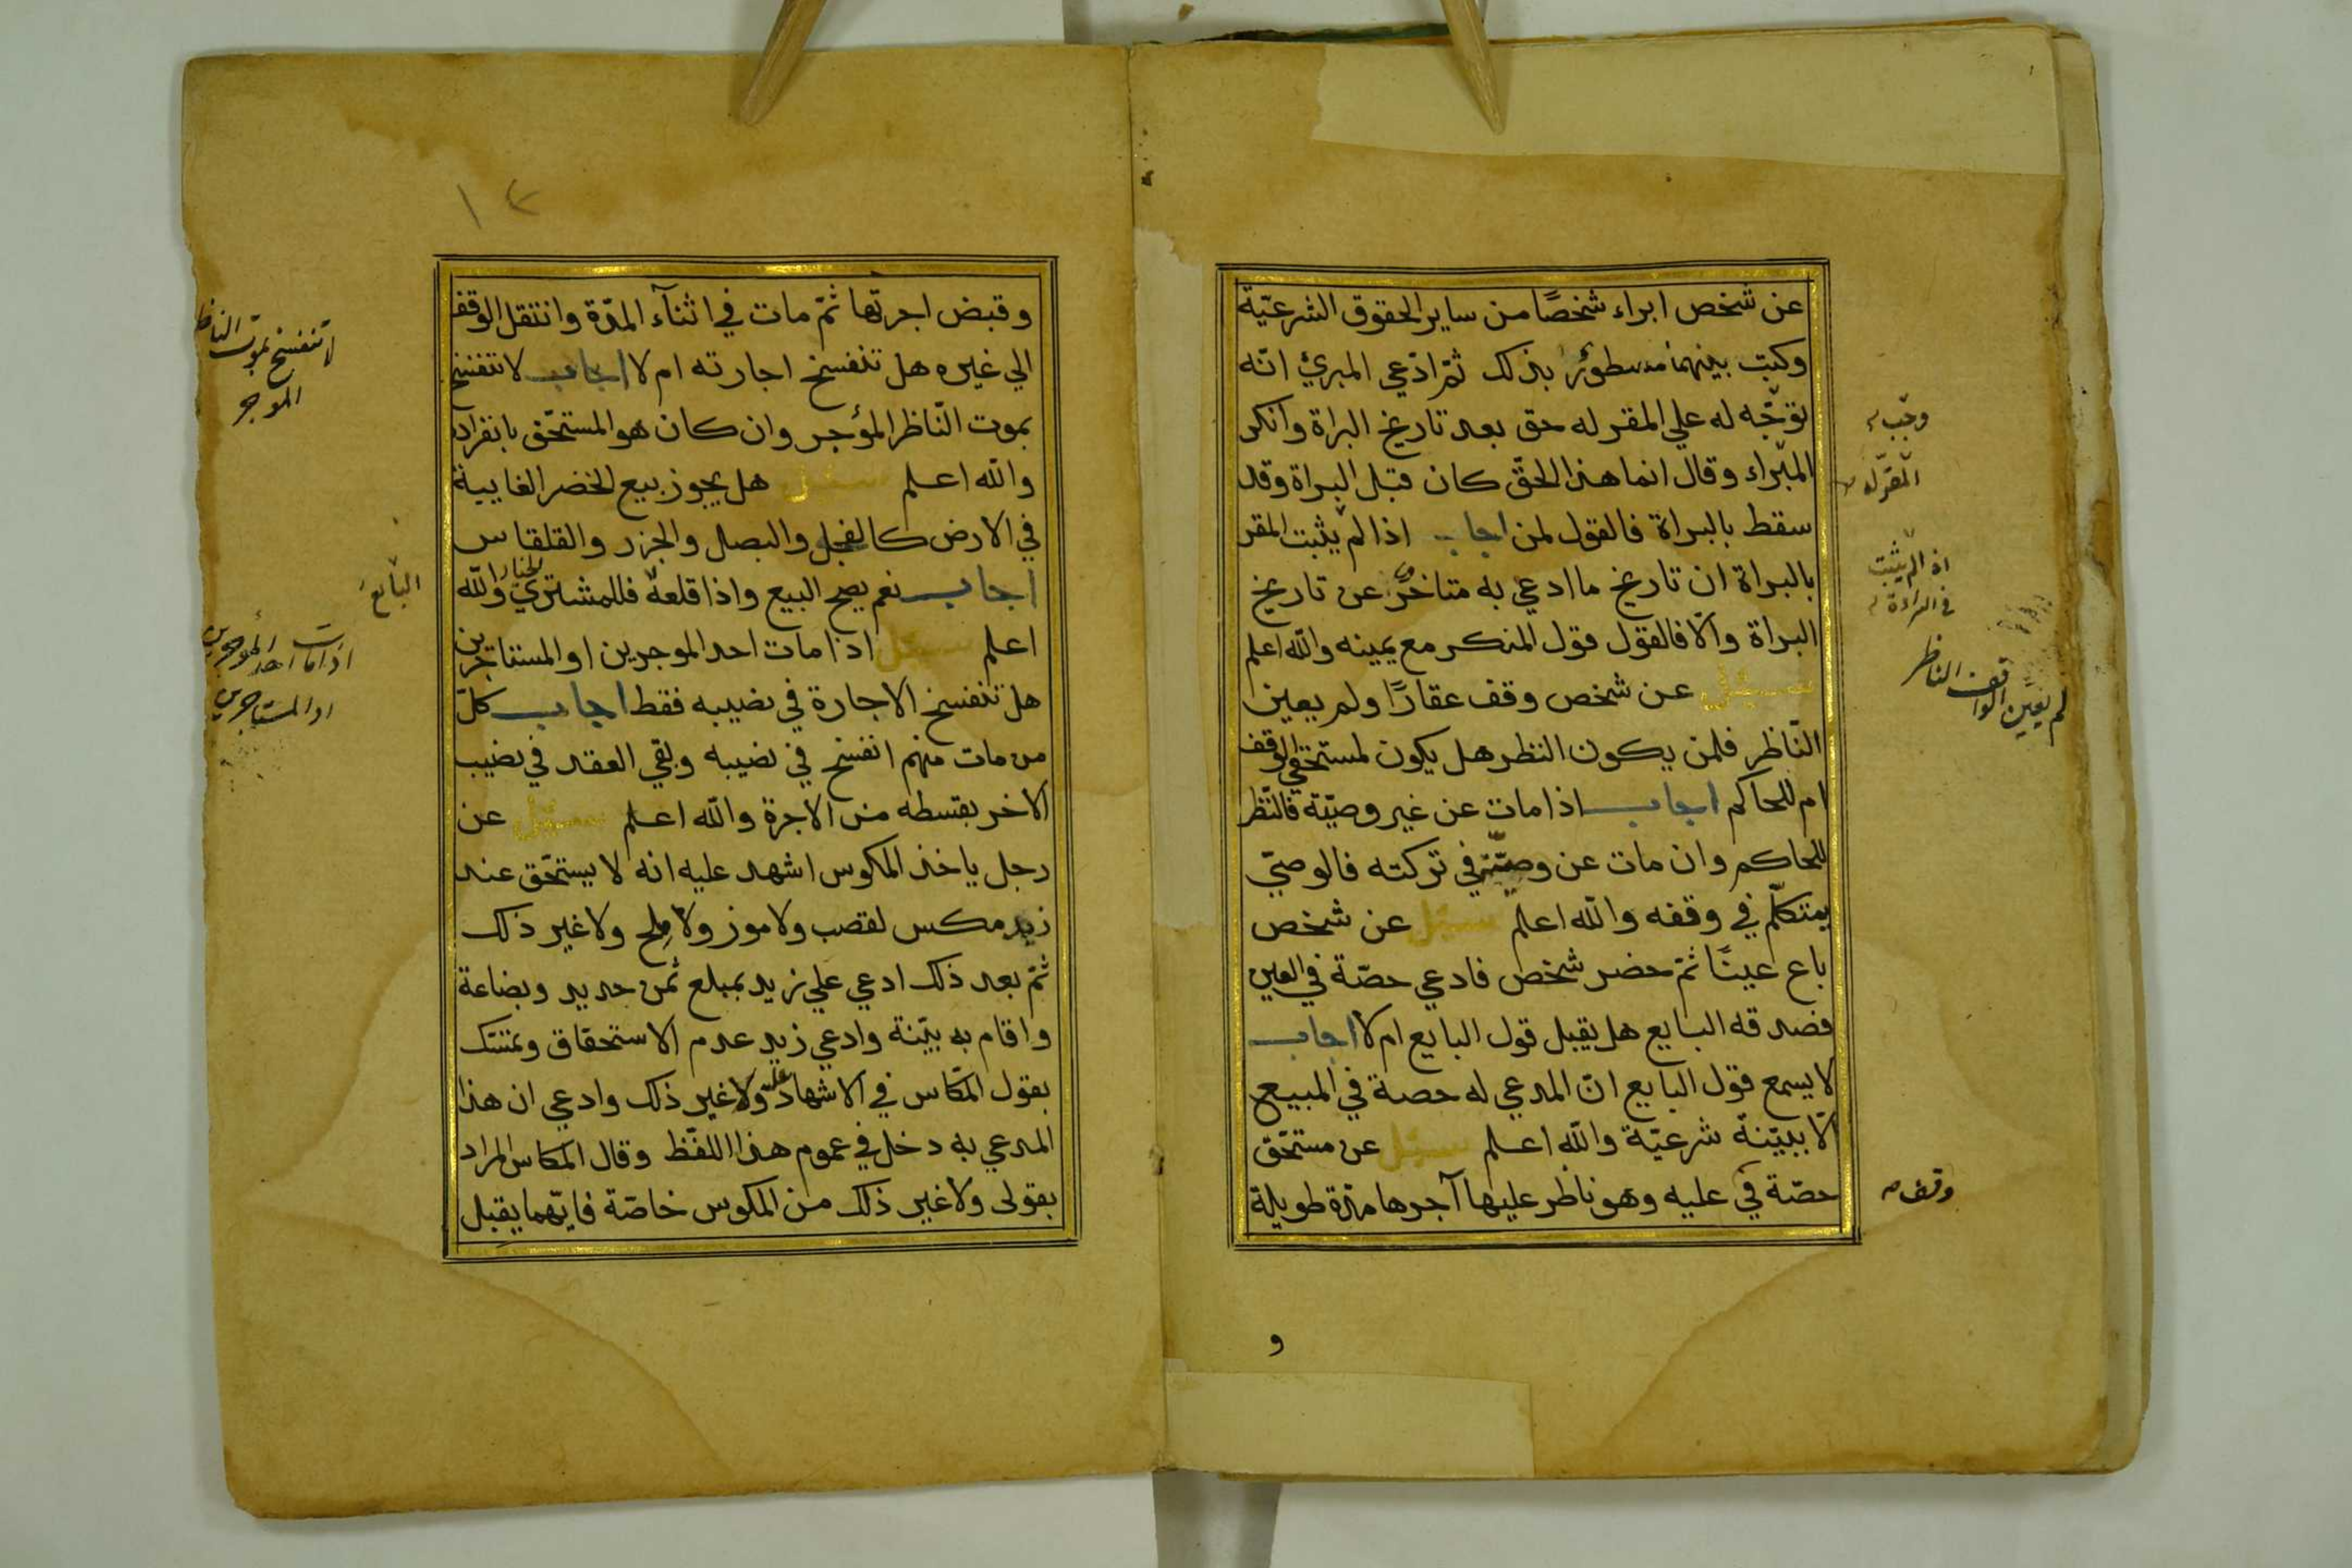 عن شخص ابراء شخصًا من ساير الحقوق الشرعيّة
وكتب بينهما مسطورًا بذلك ثمّ ادّعي المبرئ انّه
توجّه له علي المقر له حق بعد تاريخ البراة وانكر
المبّراء وقال انما هذا الحقّ كان قبل البراة وقد
سقط بالبراة فالقول لمن اجاب اذا لم يثبت المقر
بالبراة ان تاريخ ما ادعي به متاخرٌ عن تاريخ
البراة والّا فالقول قول المنكر مع يمينه والله اعلم
سئل عن شخص وقف عقارًا ولم يعين
النّاظر فلمن يكون النظر هل يكون لمستحقي الوقف
ام للحاكم اجاب اذا مات عن غير وصيّة فالنّظر
للحاكم وان مات عن وصيّة في تركته فالوصيّ
يتكلّم في وقفه والله اعلم سئل عن شخص
باع عينًا ثمّ حضر شخص فادعي حصّة في العين
فصدقه البايع هل يقبل قول البايع ام لا اجاب
لا يسمع قول البايع انّ المدعي له حصة في المبيع
الّا ببيّنة شرعيّة والله اعلم سئل عن مستحقّ
حصّة في عليه وهو ناظر عليها آجرها مدّة طويلة
وجب
المقرّ له
اذا لم يثبت
لم يعين الواقف الناظر
وقف
و
١٢
وقبض اجرتها ثمّ مات في اثنآء المدّة وانتقل الوقف
الي غيره هل تنفسخ اجارته ام لا اجاب لا تنفسخ
بموت النّاظر المؤجر وان كان هو المستحّق بانفراده
والله اعلم سئل هل يجوز بيع الخضر الغايبة
في الارض كالفجل والبصل والجزر والقلقاس
اجاب نعم يصح البيع واذا قلعه فللمشتري الخيار والله
اعلم سئل اذا مات احد الموجرين او المستاجرين
هل تنفسخ الاجارة في نصيبه فقط اجاب كلّ
من مات منهم انفسخ في نصيبه وبقي العقد في نصيب
الاخر بقسطه من الاجرة والله اعلم سئل عن
رجل ياخذ المكوس اشهد عليه انه لا يستحّق عند
زيد مكس لقصب ولا موز ولا ملح ولا غير ذلك
ثمّ بعد ذلك ادعي علي زيد بمبلغ ثمن حديد وبضاعة
واقام به بيّنة وادعي زيد عدم الاستحقاق وتمسّك
بقول المكّاس في الاشهاد عليه ولا غير ذلك وادعي ان هذا
المدعي به دخل في عموم هذا اللفظ وقال المكاس المراد
بقولى ولا غير ذلك من المكوس خاصّة فايّهما يقبل
لا تنفسخ بموت الناظر
الموجر
البائع
اذا مات احد الموجرين
او المستاجرين